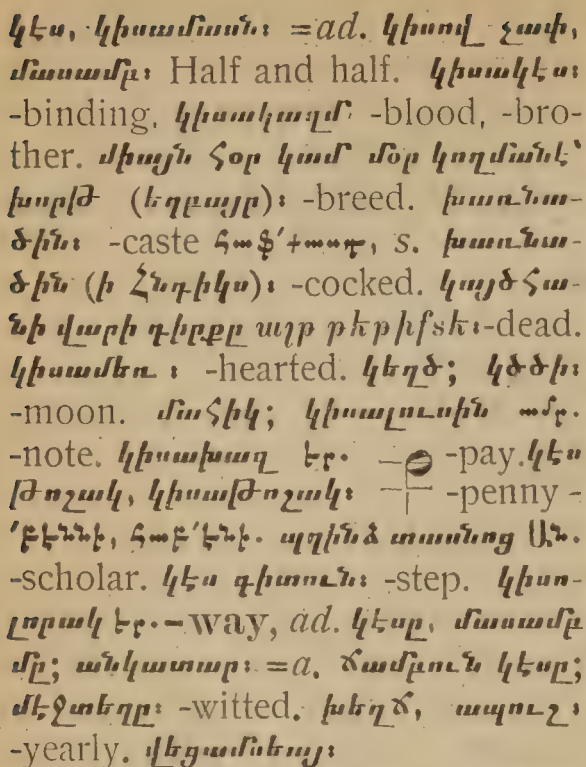 կէս, կիսամասն։ =ad. կիսով չափ,
մասամբ։ Half and half. կիսակէս։
-binding. կիսակազմ -blood, -bro-
ther. միայն հօր կամ մօր կողմանէ՝
խորթ (եղբայր)։ -breed. խառնա-
ծին։ -caste s. խառնա-
ծին (ի Հնդիկս)։ -cocked. կայծհա-
նի վարի դիրքը -dead.
կիսամեռ ։ -hearted. կեղծ; կծծի։
-moon. մահիկ; կիսալուսին ամր.
-note. կիսախազ եր. -pay. կէս
թոշակ, կիսաթոշակ։ -penny -
՛բէննի, հաբ՛էնի. պղինձ տասնոց Ան.
-scholar. կէս գիտուն։ -step. կիսո-
լորակ եր.-way, ad. կէսը, մասամբ
մը; անկատար։ =a. ճամբուն կէսը;
մէջտեղը։ -witted. խեղճ, ապուշ։
-yearly. վեցամսեայ։